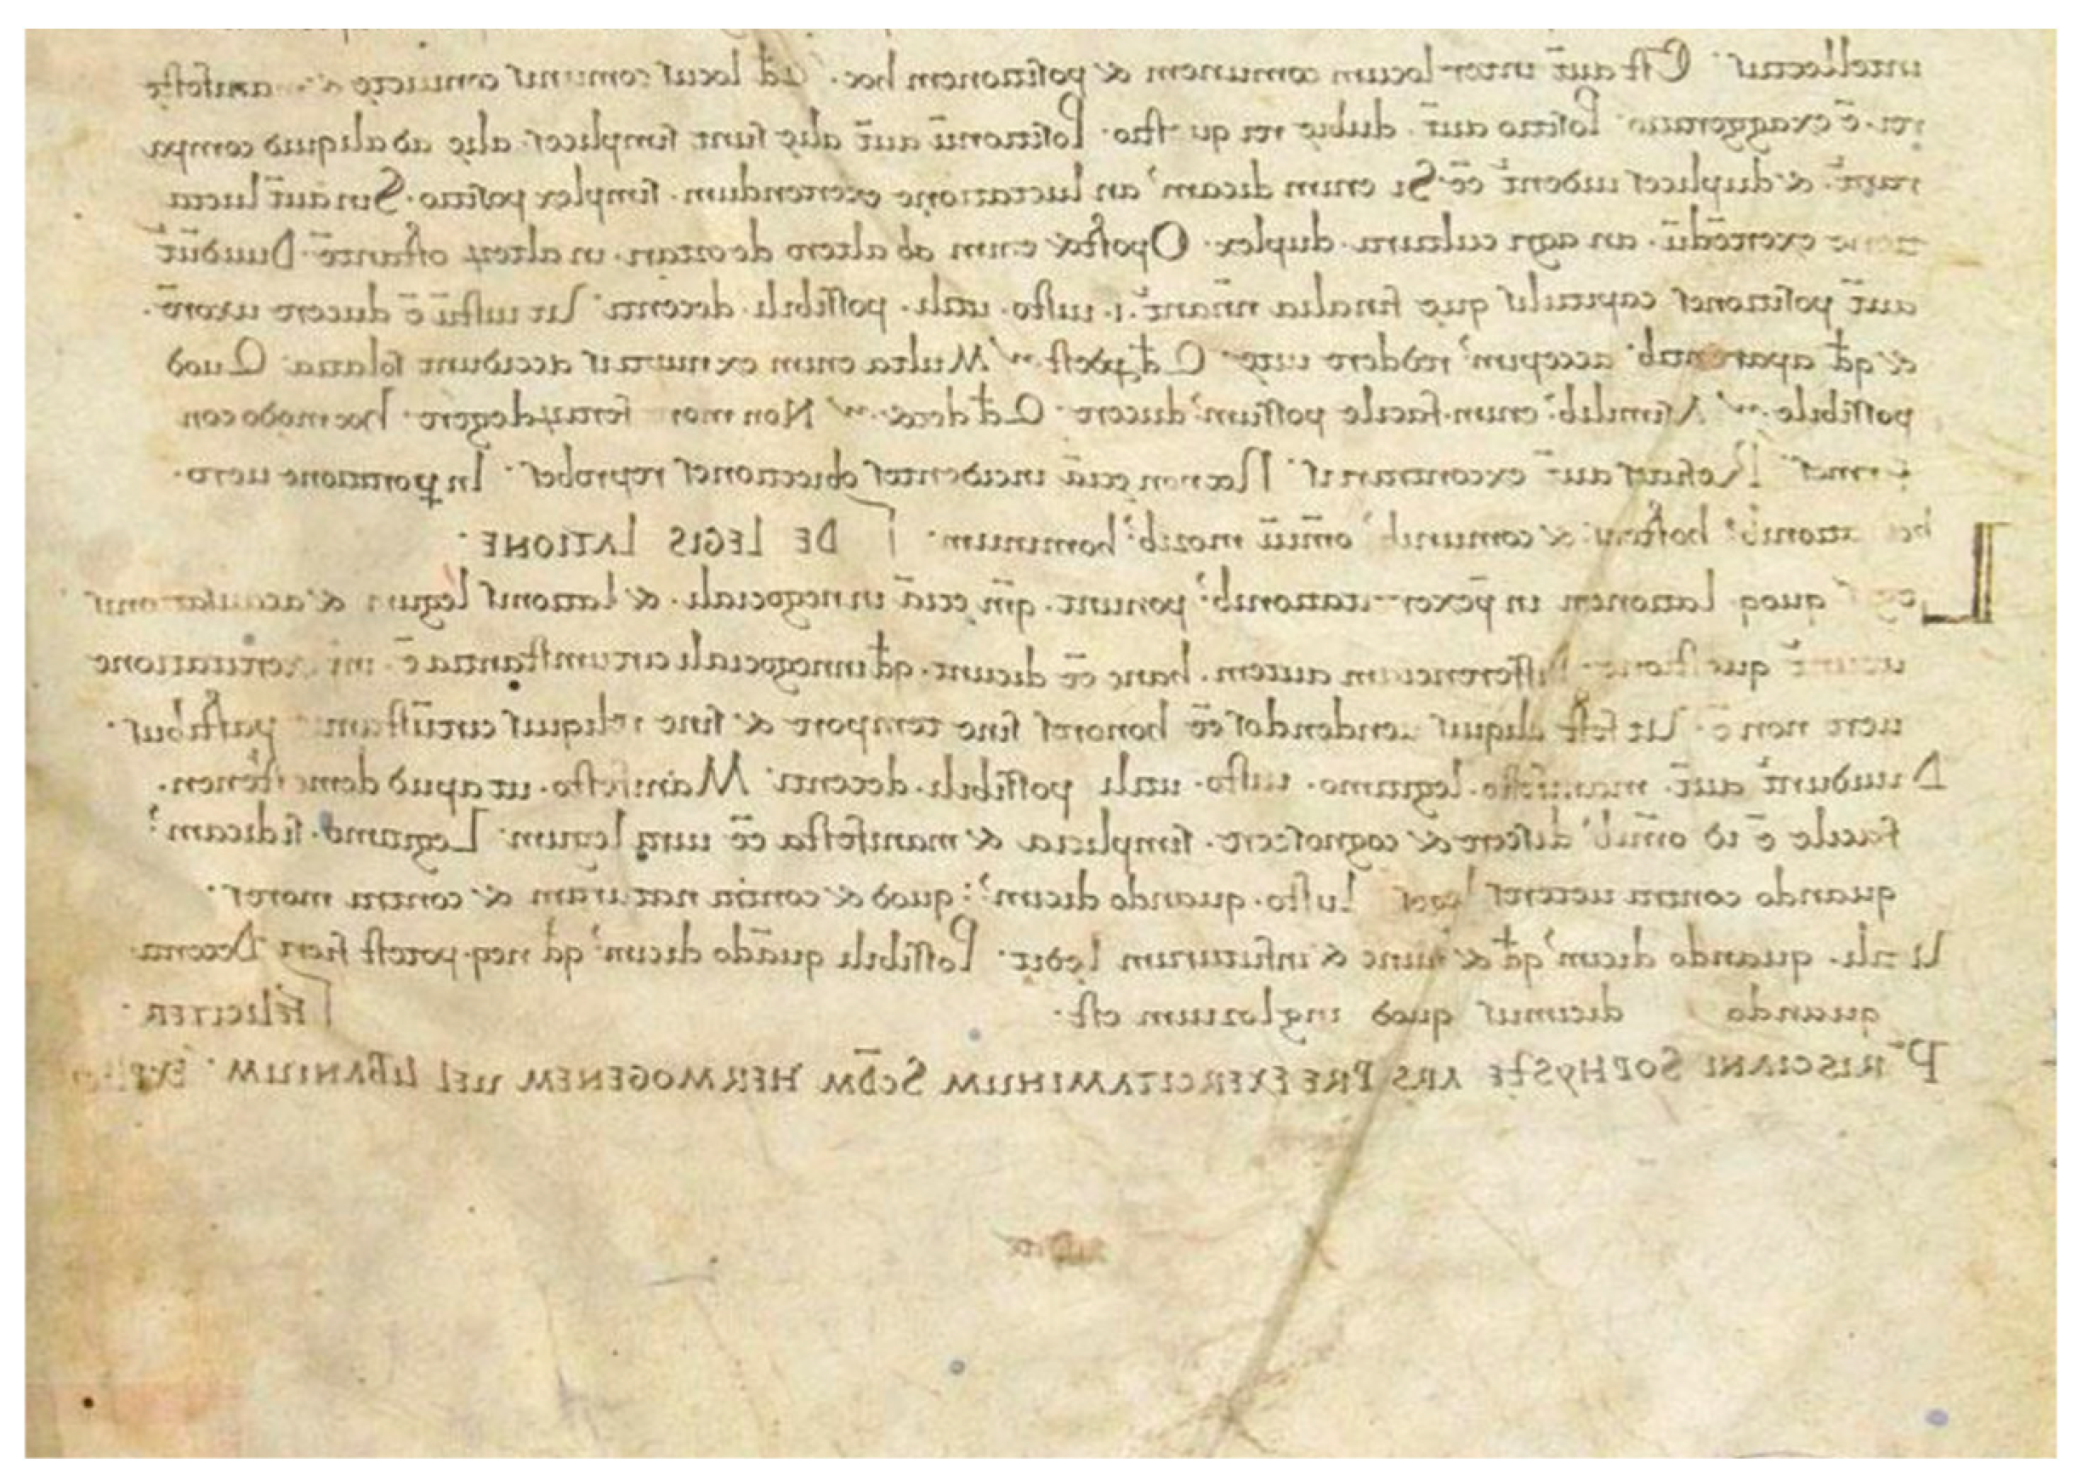 intellectus. Est aut̄ inter locum comunem & positionem hoc. qd̄ locus comunis comuicte &
rei ē exaggeratio. Positio aut̄ dubię rei questio. Positionū aut̄ alię sunt simplices. alię ad aliquid compa
rant̄. & duplices uident̄ eē. Si enim dicam' an luctatione exercendum. simplex positio. Sin aut̄ lucta
tione exercēdū. an agri cultura. duplex. Oportet enim ab altero deortari. in alterꝝ ostantē. Diuidūt̄
aut̄ positiones capitulis quę finalia n̄n̄ant̄. i. iusto. utili. possibili. decenti. Ut iustū ē ducere uxorē.
& qđ aparentib; accepim' reddere uitę. Qđ pdest. Multa enim ex nuptiis accidunt solatia. Quod
possibile. A similib; enim. facile possum' ducere. Qđ decet. Non more feraꝝ degere. hoc modo con
firmes. Refutes aut̄ ex contrariis. Nec non etiā incidentes obiectiones reprobes. In poratione uero.
hortationib; & comunib' omīū morib; hominum. DE LEGIS LATIONE.
Legis quoq latonem in pexercitationib; ponunt. qm̄ etiā in negociali. & lationis legum & accusationis
ueniunt questiones. Differenciam autem. hanc eē dicunt. qđ in negociali circumstantia ē. in exercitatione
uere non ē. Ut si sit aliquis uendendos eē honores sine tempore & sine reliquis circūstantibus.
Diuidunt̄ aut̄. manifesto. legitimo. iusto. utili. possibili. decenti. Manifesto. ut apud demostenen.
facile ē id omīb' discere & cognoscere. simplicia & manifesta eē iura legum. Legitimo. si dicam;
quando contra ueteres leges. Iusto. quando dicim; quod & contra naturam & contra mores.
Utili. quando dicim' qđ & nunc & in futurum lędit. Possibili quādo dicim' qđ neq. potest fieri. Decenti
quando dicimus quod inglorium est. FELICITER.
PRISCIANI SOPHYSTĘ ARS PREEXERCITAMINUM SCDM̄ HERMOGENEM UEL LIBANIUM. EXPLICIT